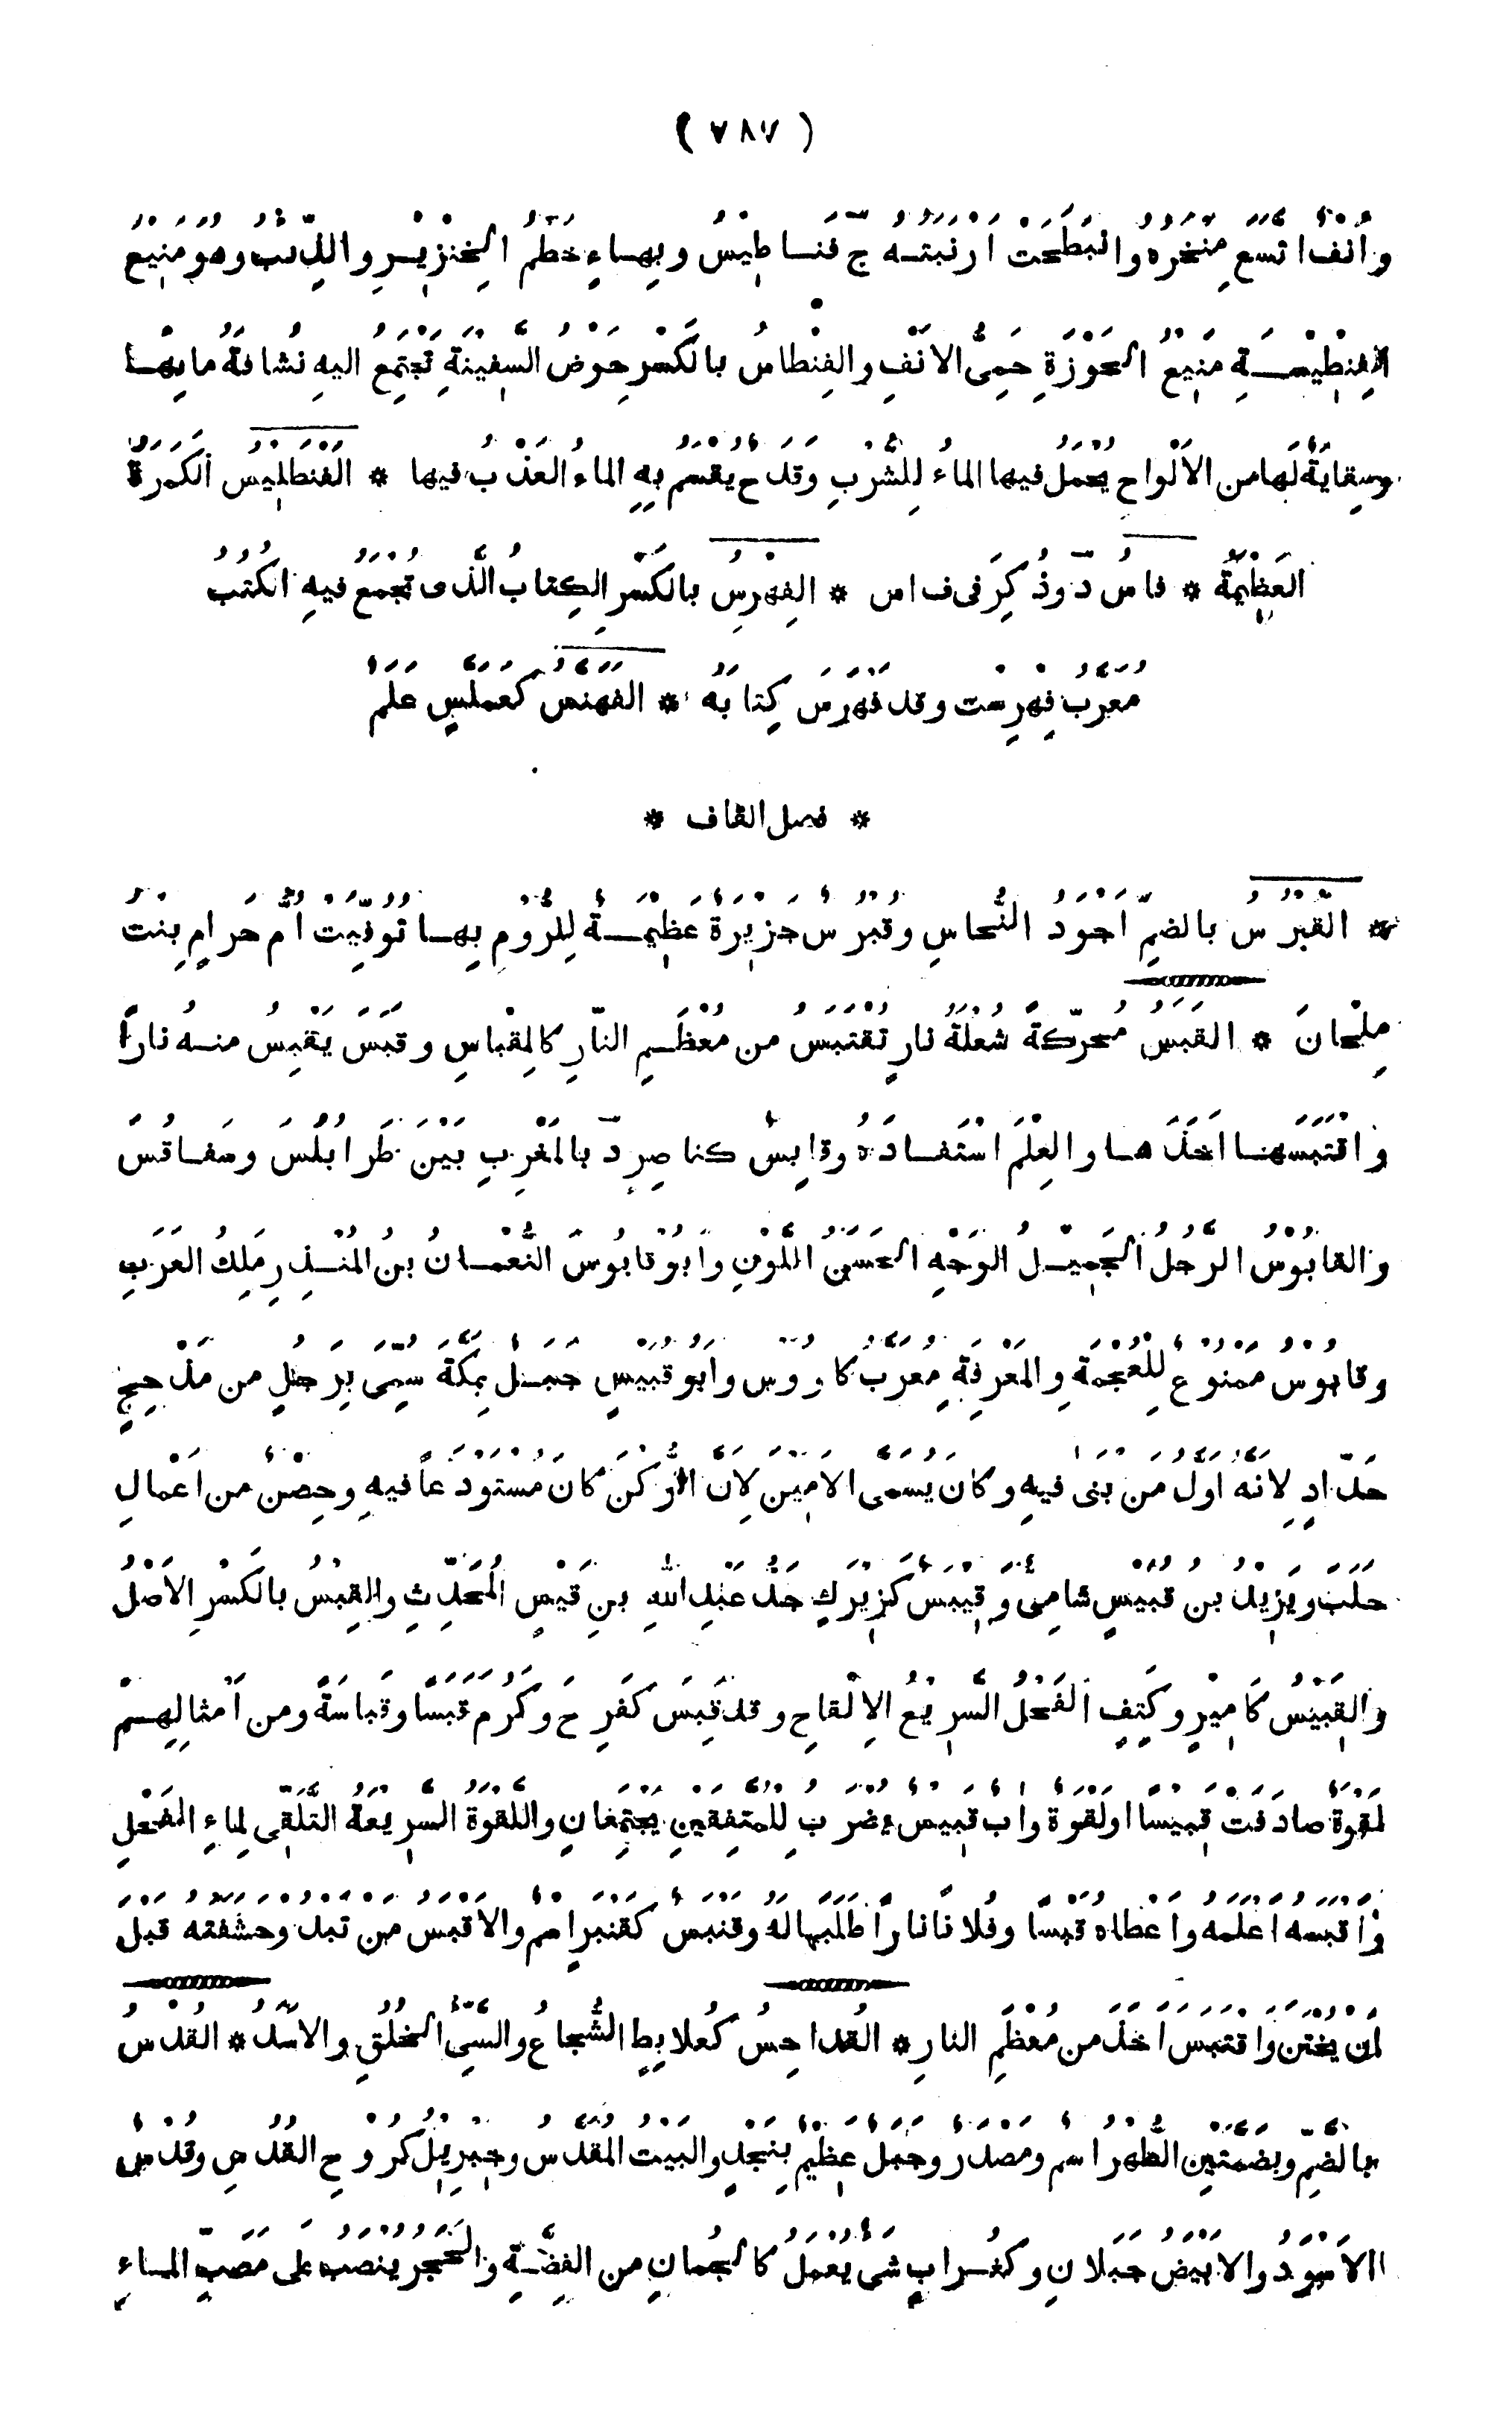 ( ٧٨٧ )
وَاَنْفٌ اتَّسَعَ مَنْخِرُهُ وانْبَطَحَتْ اَرْنَبَتُهُ ج فَنَاطِيْسُ وبِهاءٍ خَطْمُ الخِنْزِيْرِ والذِّئْبِ وهُوَ مَنِيْعُ
الفِنْطِيْسَةِ مَنِيْعُ الحَوْزَةِ حَمِىُّ الاَنْفِ والفِنْطاسُ بالكَسْرِ حَوْضُ السَّفِيْنَةِ تَجْتَمِعُ اليهِ نُشافَةُ مابِهْا
وسِقايَةٌ لَهَا من الاَلْواحِ يُحْمَلُ فيها الماءُ لِلشُّرْبِ وقَدَحٌ يُقْسَمُ بِهِ الماءُ العَذْبُ فيها * الفَنْطَلِيْسُ الكَمَرَةُ
العَظِيْمَةُ * فاسُ د وذُكِرَ فى ف ا س * الفِهْرِسُ بالكَسْرِ الكِتابُ الَّذى تُجْمَعُ فيهِ الكُتُبُ
مُعَرَّبُ فِهْرِسْت وقد فَهْرَسَ كِتابَهُ * الفَهَنَّسُ كَعَمَلَّسٍ عَلَمٌ
* فصل القاف *
* القُبْرُسُ بالضمِّ اَجْوَدُ النُّحاسِ وقُبْرُسُ جَزِيْرَةٌ عَظِيْمَةٌ لِلرُّوْمِ بِها تُوُفِّيَتْ اُمُّ حَرامٍ بِنْتُ
مِلْحانَ * القَبَسُ مُحرَّكةً شُعْلَةُ نارٍ تُقْتَبَسُ من مُعْظَمِ النّارِ كالمِقْباسِ وقَبَسَ يَقْبِسُ منهُ نارًا
وَاقْتَبَسَهَا اَخَذَها والعِلْمَ اسْتَفادَهُ وقابِسُ كناصِرٍ د بالمَغْرِبِ بَيْنَ طَرابُلُسَ وسَفاقُسَ
والقابُوْسُ الرَّجُلُ الجَمِيْلُ الوَجْهِ الحَسَنُ اللَّوْنِ واَبُوْقابُوْسَ النُّعْمانُ بنُ المُنْذِرِ مَلِكُ العَرَبِ
وقابُوْسُ مَمْنُوْعٌ لِلْعُجْمَةِ والمَعْرِفَةِ مُعَرَّبُ كاوُوْس واَبُوقُبَيْسٍ جَبَلٌ بِمَكَّةَ سُمِّىَ بِرَجُلٍ من مَذْحِجٍ
حَدّادٍ لِاَنَّهُ اَوَّلُ مَنْ بَنٰى فيهِ وكانَ يُسَمَّى الاَمِيْنَ لِاَنَّ الرُّكْنَ كانَ مُسْتَوْدَعًا فيهِ وحِصْنٌ من اَعْمالِ
حَلَبَ ويَزِيْدُ بنُ قُبَيْسٍ شامِىٌّ وقِيْبَسٌ كزِيْرَكٍ جَدُّ عَبْدِ اللهِ بنِ قَيْسٍ المُحَدِّثِ والقِبْسُ بالكَسْرِ الاَصْلُ
والقَبِيْسُ كَاَمِيْرٍ وكَتِفٍ الفَحْلُ السَّرِيْعُ الاِلْقاحِ وقد قَبِسَ كَفَرِحَ وكَرُمَ قَبَسًا وقَباسَةً ومن اَمْثالِهِمْ
لَقْوَةٌ صادَفَتْ قَبِيْسًا اولَقْوَةٌ واَبٌ قَبِيْسٌ يُضْرَبُ لِلْمُتَّفِقَيْنِ يَجْتَمِعانِ واللَّقْوَةُ السَّرِيْعَةُ التَّلَقِّى لِماءِ الفَحْلِ
واَقْبَسَهُ اَعْلَمَهُ واَعْطاهُ قَبَسًا وفُلانًا نارًا طَلَبَها لَهُ وقَنْبَسٌ كَقَنْبَرٍ اسمٌ والاَقْبَسُ مَنْ تَبْدُو حَشَفَتُهُ قَبْلَ
اَنْ يُخْتَنَ وَاقْتَبَسَ اَخَذَ من مُعْظَمِ النارِ * القُداحِسُ كَعُلابِطٍ الشُّجاعُ والسَّيِّئُ الخُلُقِ والاَسَدُ * القُدْسُ
بالضَمِّ وبضَمَّتَيْنِ الطُّهْرُ اسْمٌ ومَصْدَرٌ وجَبَلٌ عَظِيْمٌ بِنَجْدٍ والبَيْتُ المُقَدَّسُ وجِبْرِيْلُ كرُوْحِ القُدُسِ وقُدْسٌ
الاَسْوَدُ والاَبْيَضُ جَبَلانِ وكغُرابٍ شَىْءٌ يُعْمَلُ كالجُمانِ من الفِضَّةِ والحَجَرُ يُنْصَبُ على مَصَبِّ الماءِ